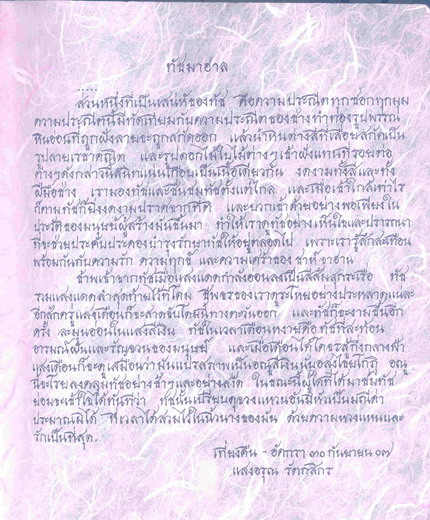 ทัชมาฮาล
.....
ส่วนหนึ่งที่เป็นเสน่ห์ของทัช คือความประณีตทุกซอกทุกมุม
ความประณีตนี้มีทัดเทียมกับความประณีตของช่างทำทองรูปพรรณ
หินอ่อนที่ถูกฝังลายจะถูกสกัดออก แล้วนำหินต่างสีที่เลื่อยสกัดเป็น
รูปลายเรขาคณิต และรูปดอกไม้ใบไม้ต่างๆเข้าฝังแทนที่รอยต่อ
ต่างๆดังกล่าวนี้สนิทแน่นเกือบเป็นเนื้อเดียวกัน งดงามทั้งสีและทั้ง
ฝีมือช่าง เรามองทัชและชื่นชมทัชตั้งแต่ไกล และเมื่อเข้าใกล้เท่าไร
ก็ตามทัชก็ยิ่งงดงามปราศจากที่ติ และบวกเข้าด้วยอย่างพอเพียงใน
ประวัติของมนุษย์ผู้สร้างมันขึ้นมา ทำให้เราดูทัชอย่างเห็นใจและปรารถนา
ที่จะช่วยประคับประคองบำรุงรักษาทัชให้อยู่ตลอดไป เพราะเรารู้สึกสะเทือน
พร้อมกันกับความรัก ความทุกข์ และความเศร้าของ ชาห์ จาฮาน
ข้าพเจ้าจากทัชเมื่อแสงแดดกำลังอ่อนลงเป็นสีส้มสุกระเรื่อ ทัช
รวมแสงแดดลำสุดท้ายไว้ที่โดม ชีพจรของเราดูระโหยอย่างประหลาดและ
อีกสักครู่แสงเดือนก็จะสาดจับโดมนี้ทางตะวันออก และทัชก็จะงามขึ้นอีก
ครั้ง ละมุนอ่อนในแสงสีเงิน ทัชในเวลาเดือนหงายคือทัชที่สะท้อน
อารมณ์ฝันและรัญจวนของมนุษย์ และเมื่อเดือนได้โคจรสู่กึ่งกลางฟ้า
แสงเดือนก็จะดูเสมือนว่ามันแปรสภาพเป็นอณูสีเงินนุ่มลงไซ้ยโกฏิ อณู
นี้จะโรยลงคลุมทัชอย่างช้าๆและอย่างสงัด ในขณะนี้ผู้ใดที่ได้มาชมทัช
ย่อมจะเข้าใจได้ทันทีว่า ทัชนั้นเปรียบดุจวงแหวนอันมีหัวเป็นมณีค่า
ประมาณมิได้ ที่เวลาได้สวมไว้ในนิ้วนางของมัน ด้วยความหวงแหนและ
รักเป็นที่สุด.
เที่ยงคืน - อัคครา ๓๐ กันยายน ๐๗
แสงอรุณ รัตกสิกร